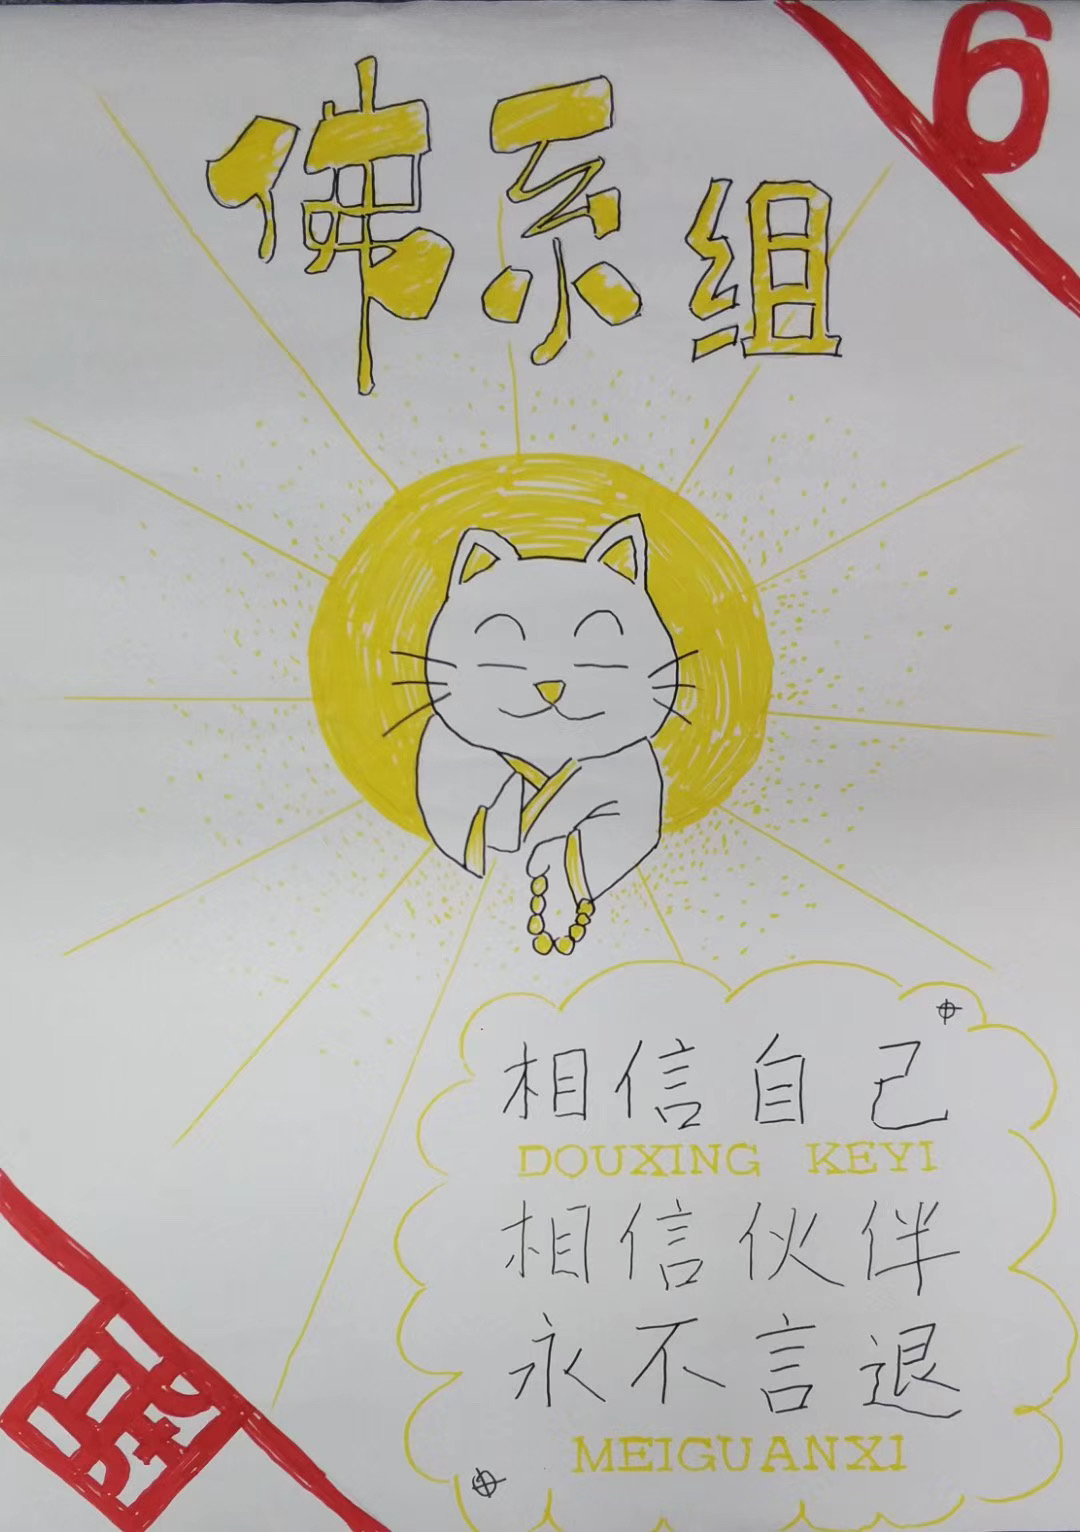 6
佛系组
相信自己
DOUXING KEYI
相信伙伴
永不言退
MEIGUANXI